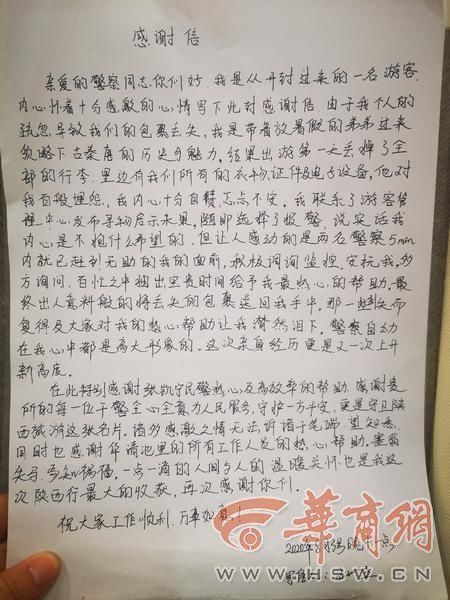 感谢信
亲爱的警察同志你们好,我是从开封过来的一名游客,
内心怀着十分感激的心情写下此封感谢信.由于我个人的
疏忽导致我们的包裹丢失,我是带着放暑假的弟弟过来
领略下古秦唐的历史与魅力,结果出游第一天丢掉了全
部的行李.里边有我们所有的衣物,证件及电子设备,他对
我百般埋怨,我内心十分自责,忐忑不安.我联系了游客管
理中心发布寻物启示未果,随即选择了报警,说实话我
内心是不抱什么希望的.但让人感动的是两名警察5min
内就已赶到无助的我的面前,积极调阅监控,安抚我,多
方询问.百忙之中抽出宝贵时间给予我最热心的帮助.最
终出人意料般的将丢失的包裹送回我手中,那一刻失而
复得及大家对我的热心帮助让我潸然泪下,警察自幼
在我心中都是高大形象的.这次亲身经历更是又一次上升
新高度.
在此特别感谢张凯宇民警热心及高效率的帮助.感谢贵
所的每一位干警全心全意为人民服务,守护一方平安,更是守卫陕
西旅游这张名片.诸多感激之情无法诉诸于笔端.望知悉.
同时也感谢华清池里的所有工作人员的热心帮助.塞翁
失马,焉知祸福,一点一滴的人间与人的温暖关怀也是我这
次陕西行最大的收获,再次感谢你们.
祝大家工作顺利,万事如意!
2020年8月 晚十一点
华商网
WWW.HSW.CN